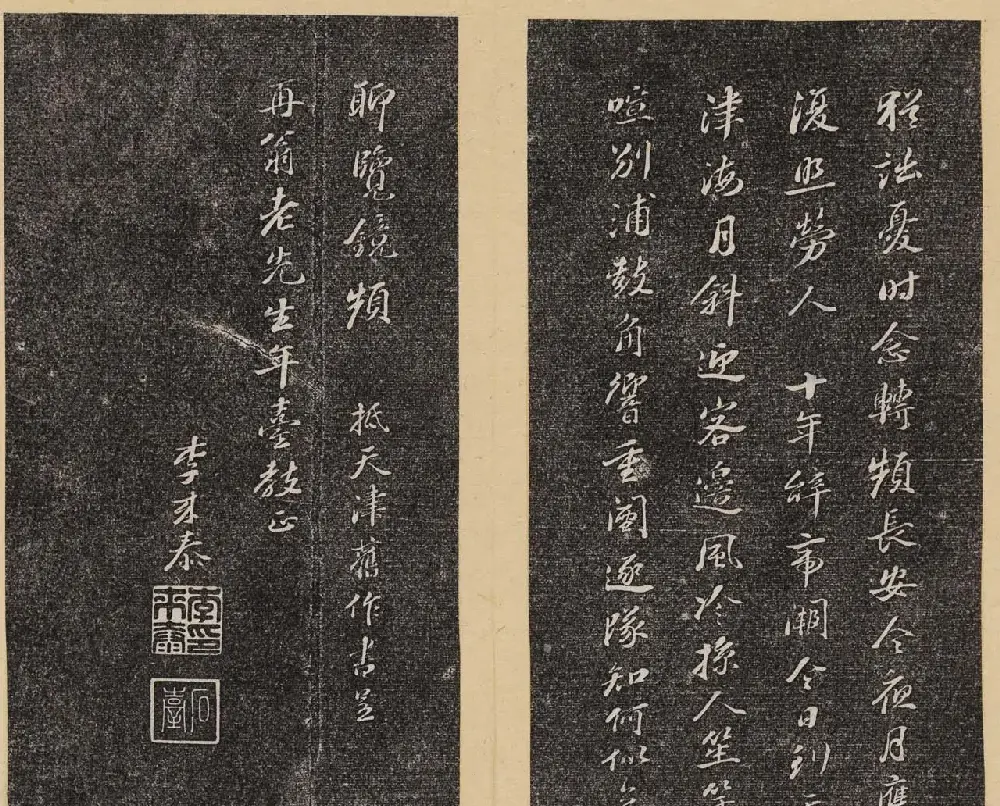 詘憂时念轉頻長安今夜月應
復照勞人 十年辭帝闕今日到
津海月斜迎客邊風冷人笙
喧別浦鼓角響重闉逐隊知何似
聊覽鏡頻 抵天津舊作書呈
冉翁老先生年臺教正
李来泰
李印来泰
石臺